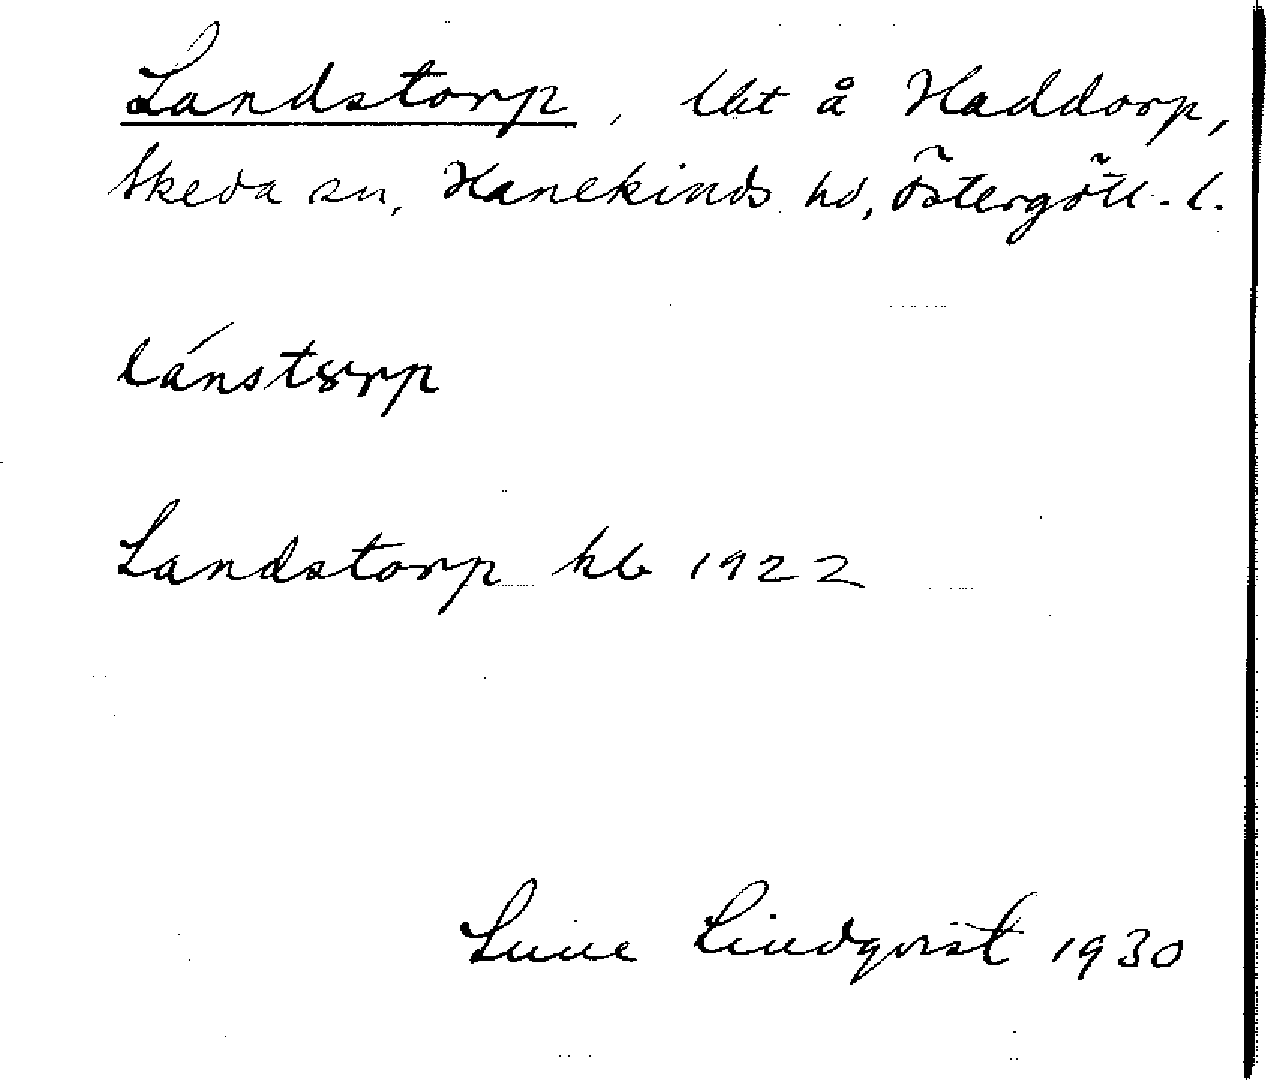 Landstorp, lht å Haddorp,
Skeda sn, Hanekinds hd, Östergötl. l.
lánstȣrp
Landstorp kb 1922
Sune Lindqvist 1930